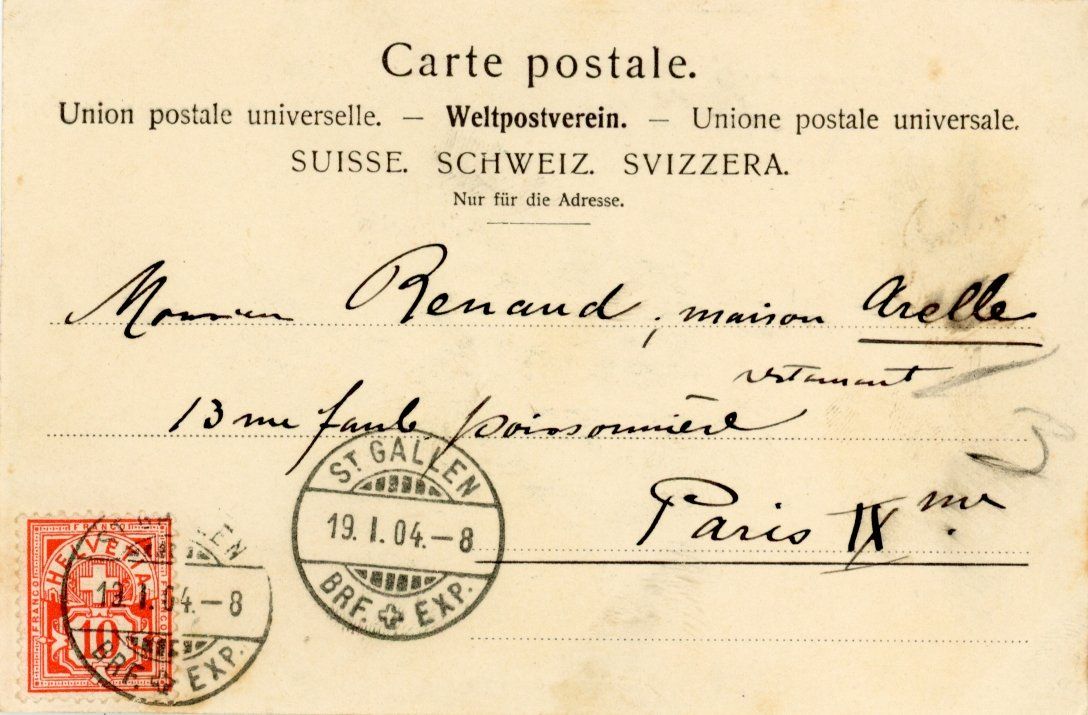 Carte postale.
Union postale universelle. — Weltpostverein. — Unione postale universale.
SUISSE. SCHWEIZ. SVIZZERA.
Nur für die Adresse.
Monsieur Renaud, maison Arelle
restaurant
13 rue faub. poissonnière
Paris IX me
ST GALLEN
19. I. 04. – 8
BRF. EXP.
FRANCO
HELVETIA
FRANCO
FRANCO
10
GALLEN
19. I. 04. – 8
BRF. EXP.